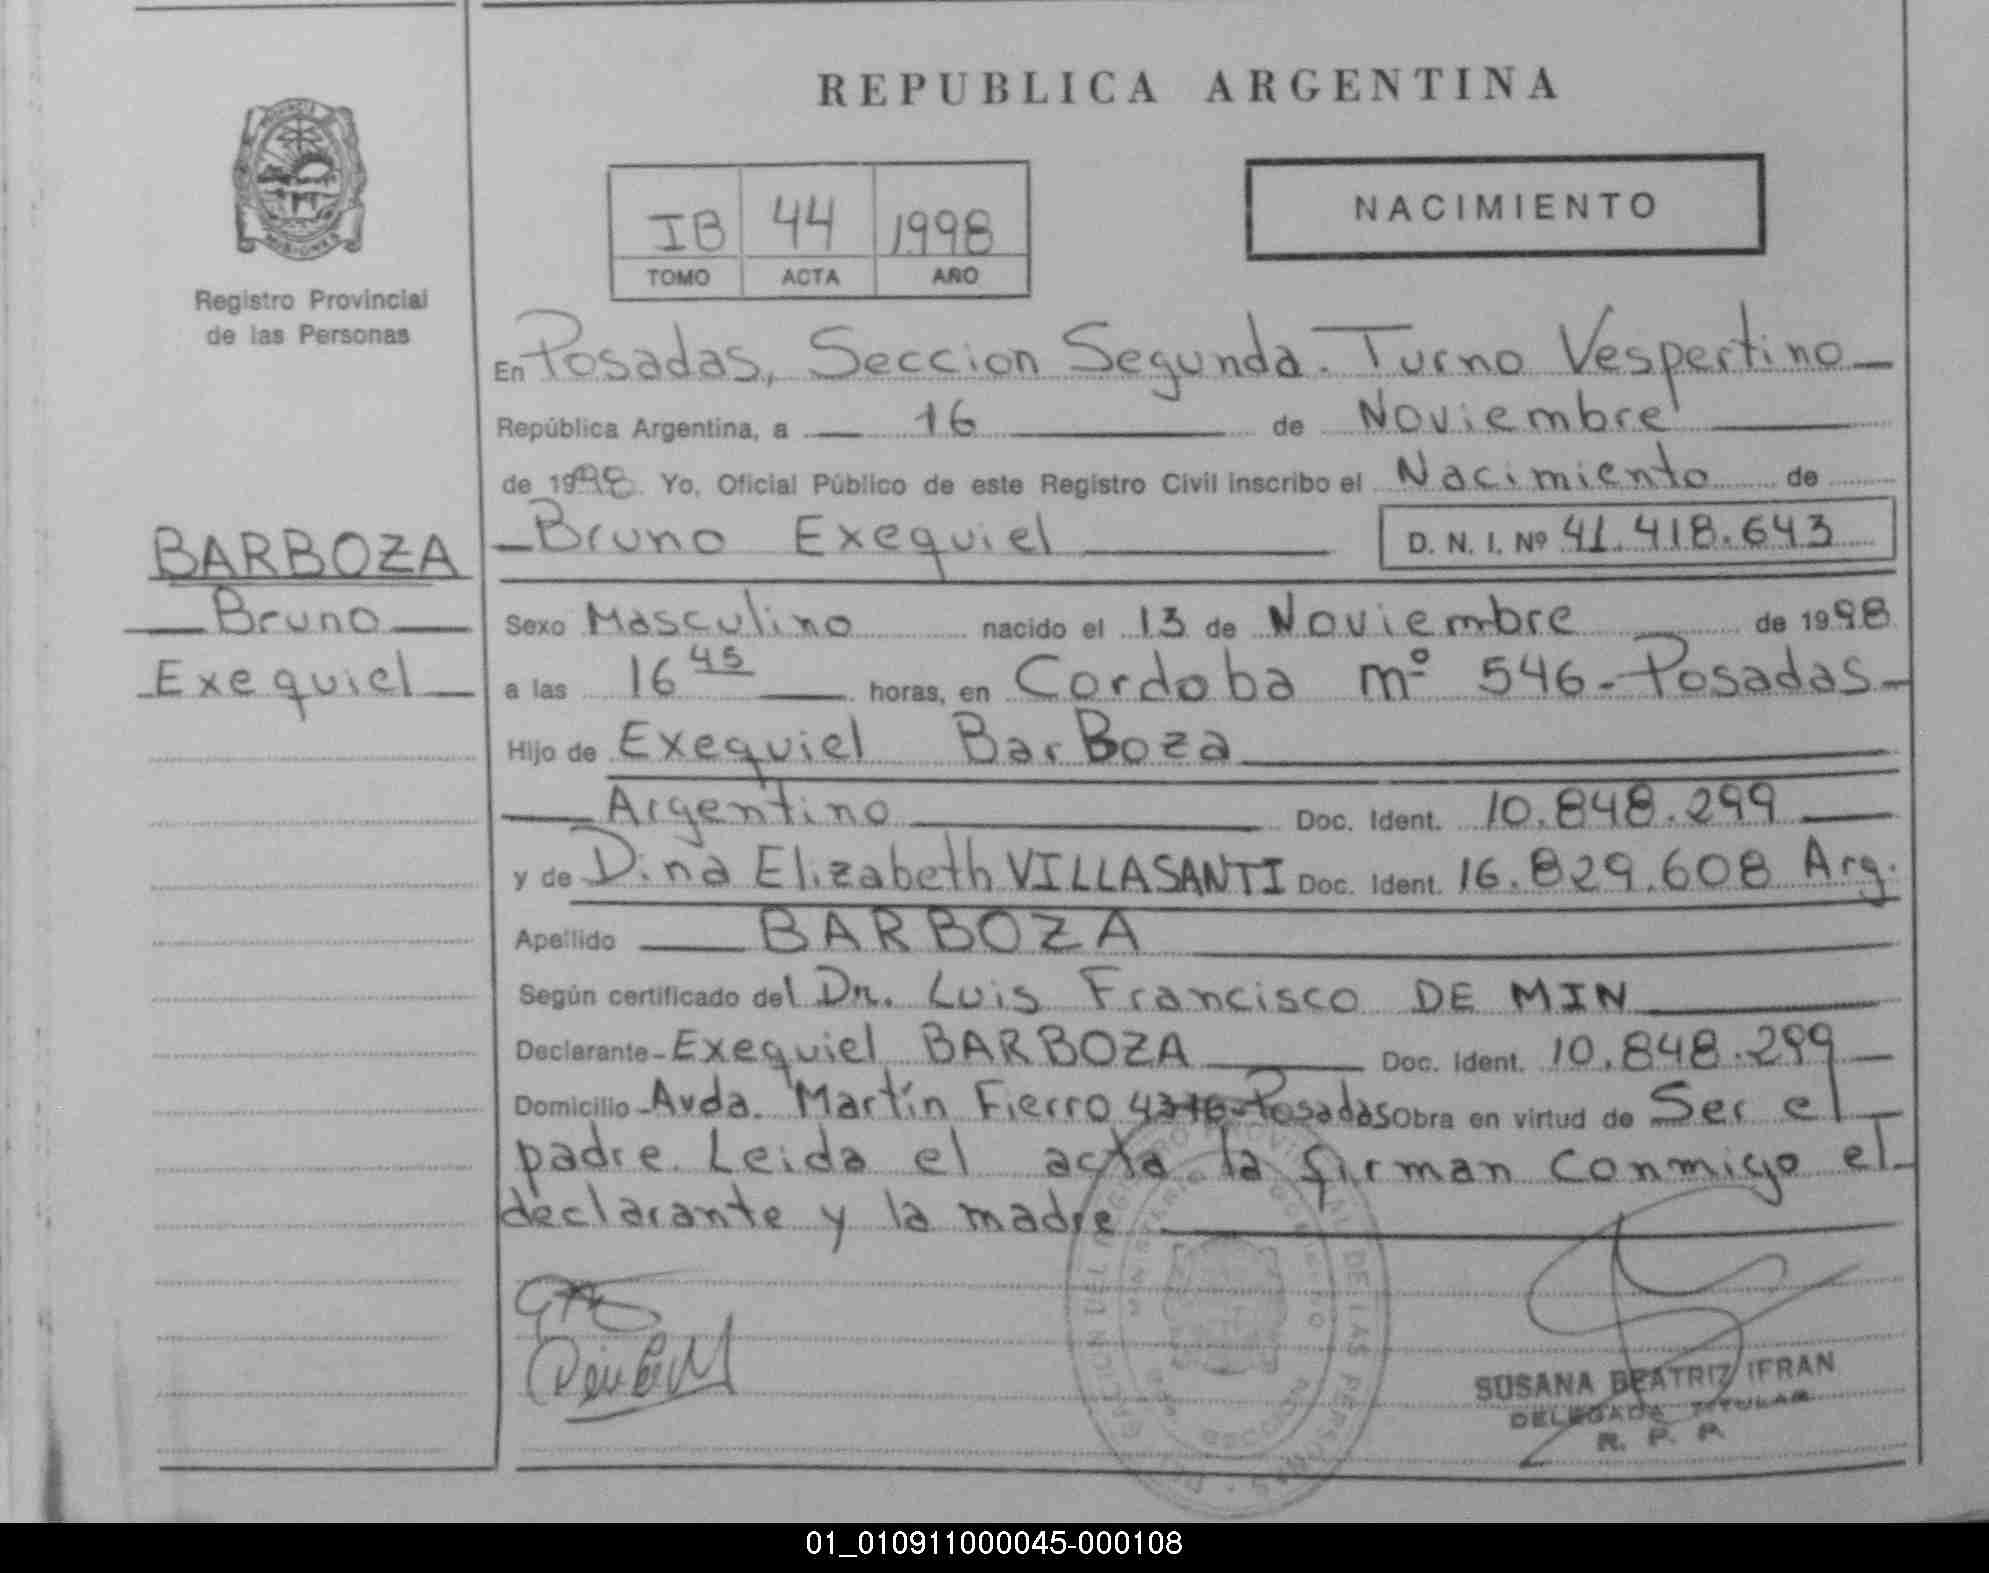 REPUBLICA ARGENTINA
PROVINCIA
MISIONES
Registro Provincial
de las Personas
IB 44 1998
TOMO ACTA AÑO
NACIMIENTO
En Posadas, Seccion Segunda. Turno Vespertino
República Argentina, a 16 de Noviembre
de 1998. Yo, Oficial Público de este Registro Civil inscribo el Nacimiento de
Bruno Exequiel D. N. I. Nº 41.418.643
BARBOZA
Bruno
Exequiel
Sexo Masculino nacido el 13 de Noviembre de 1998
a las 16 45 horas, en Cordoba nº 546-Posadas
Hijo de Exequiel BarBoza
Argentino Doc. Ident. 10.848.299
y de Dina Elizabeth VILLASANTI Doc. Ident. 16.829.608 Arg.
Apellido BARBOZA
Según certificado del Dr. Luis Francisco DE MIN
Declarante Exequiel BARBOZA Doc. Ident. 10.848.299
Domicilio Avda. Martín Fierro Posadas Obra en virtud de Ser el
padre. Leida el acta la firman conmigo el
declarante y la madre
SUSANA BEATRIZ IFRAN
DELEGADA TITULAR
R. P. P.
01_010911000045-000108